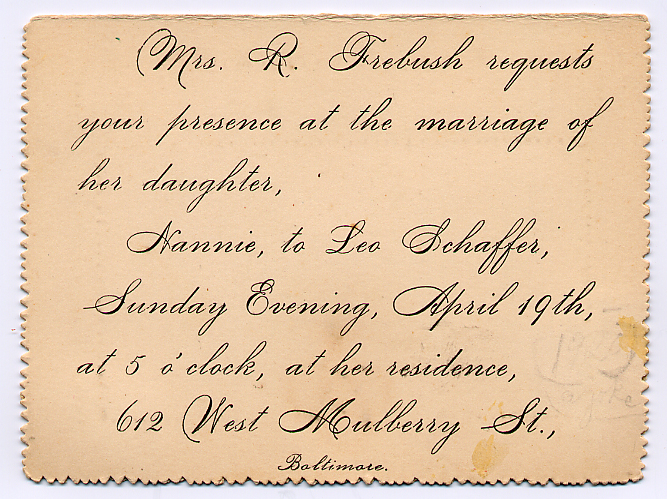 Mrs. R. Frebush requests
your presence at the marriage of
her daughter,
Nannie, to Leo Schaffer,
Sunday Evening, April 19th,
at 5 o'clock, at her residence,
612 West Mulberry St.,
Baltimore.